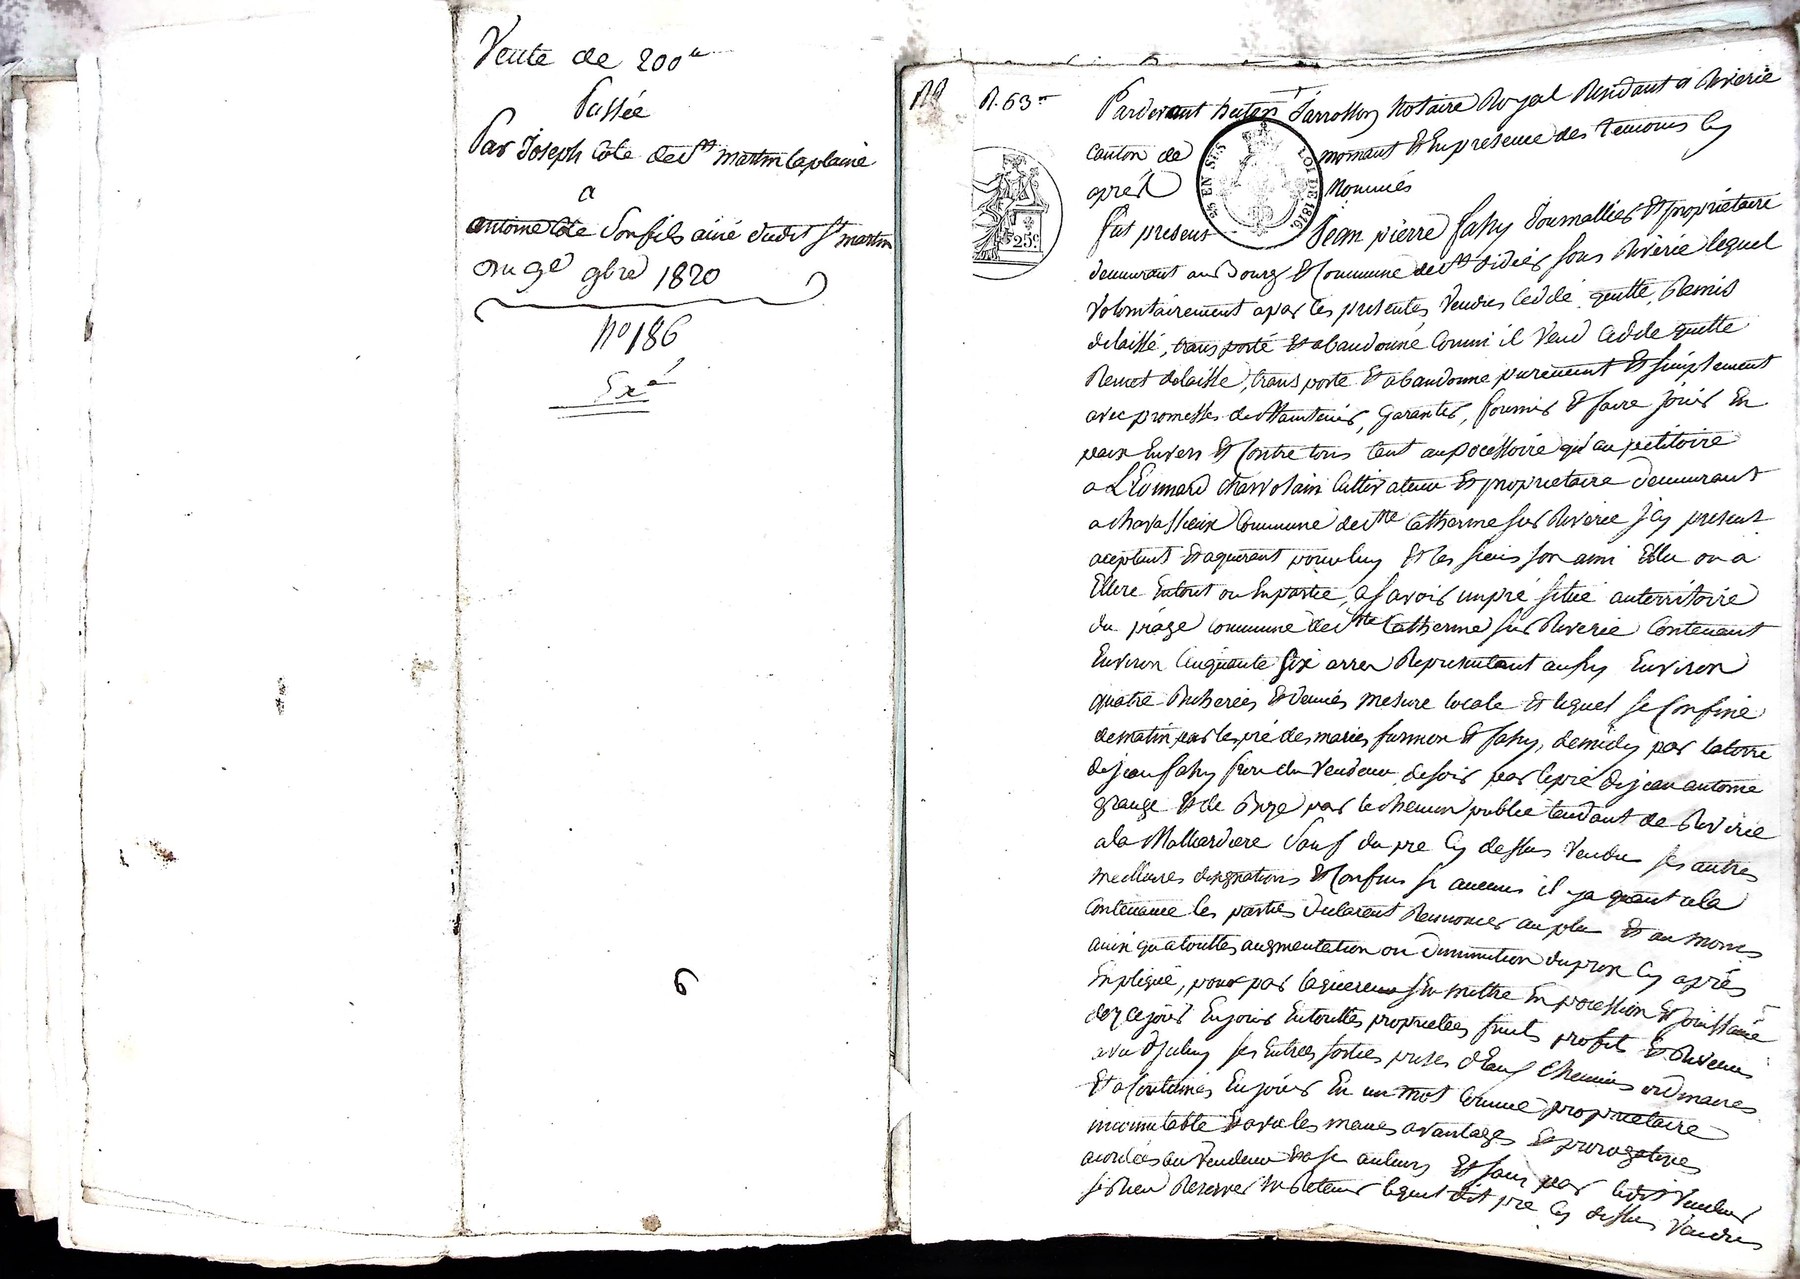 Vente de 200#
Passée
Par Joseph Cote de St martin laplaine
a
antoine Cote Son fils ainé dudit St martin
Du 9e 9bre 1820
no 186
Exé
6
R. 63
25c
25 EN SUS LOI DE 1816
Pardevant Notaire Royal Residant a Riverie
Canton de mornant Et En presence des temoins Cy
apres Nommés
fut present Jean pierre fahy Journallier Et propriétaire
demeurant au Bourg Et Commune de St didier sous Riverie lequel
volontairement a par les presentes Vendu Ceddé, quitté, Remis
delaissé, transporté Et abandonné Comme il Vend Cedde quitte
Remet delaisse, transporte Et abandonne purement Et Simplement
avec promesse de Maintenir, Garantir, fournir Et faire jouir En
paix Envers Et Contre tous tant au pocessoire qu'au petitoire
a Léonnard Cultivateur Et proprietaire demeurant
a Commune de Ste Catherine sur Riverie Jcy present
aceptant Et aquerant pour luy Et les siens son ami Elu ou a
Elire En tout ou En partie, a Savoir un pré Situé au territoire
du piage Commune de Ste Catherine sur Riverie Contenant
Environ Cinquante Six arres Representant aussy Environ
quatre Bicherées Et demies mesure locale Et lequel Se Confine
de matin par les pré des maries Et fahy, de midy par la terre
de jean fahy frere du Vendeur de soir par le pré de jean antoine
grange Et de Bize par le Chemin public tendant de Riverie
a la Malliardiere Sauf du pré Cy dessus Vendu ses autres
meilleures designations Et Confins si aucuns il y a quant a la
Contenance les parties declarent Renoncer au plus Et au moins
ainsi qu'a touttes augmentation ou diminution du prix Cy après
Expliqué, pour par laquereur s'En mettre En pocession Et Jouissance
dez ce jour En jouir En touttes proprietées fruits profits Et Revenus
avec d'Iceluy ses Entrées sorties prises d'Eaux Chemins ordinaires
Et acoutumés En jouir En un mot Comme proprietaire
incomutable Et avec les memes avantages Et prerogatives
acordées au Vendeur Et a Se auteurs Et sans par ledit Vendeur
se Rien Reserver ni Retenir lequel dit pré Cy dessus Vendu